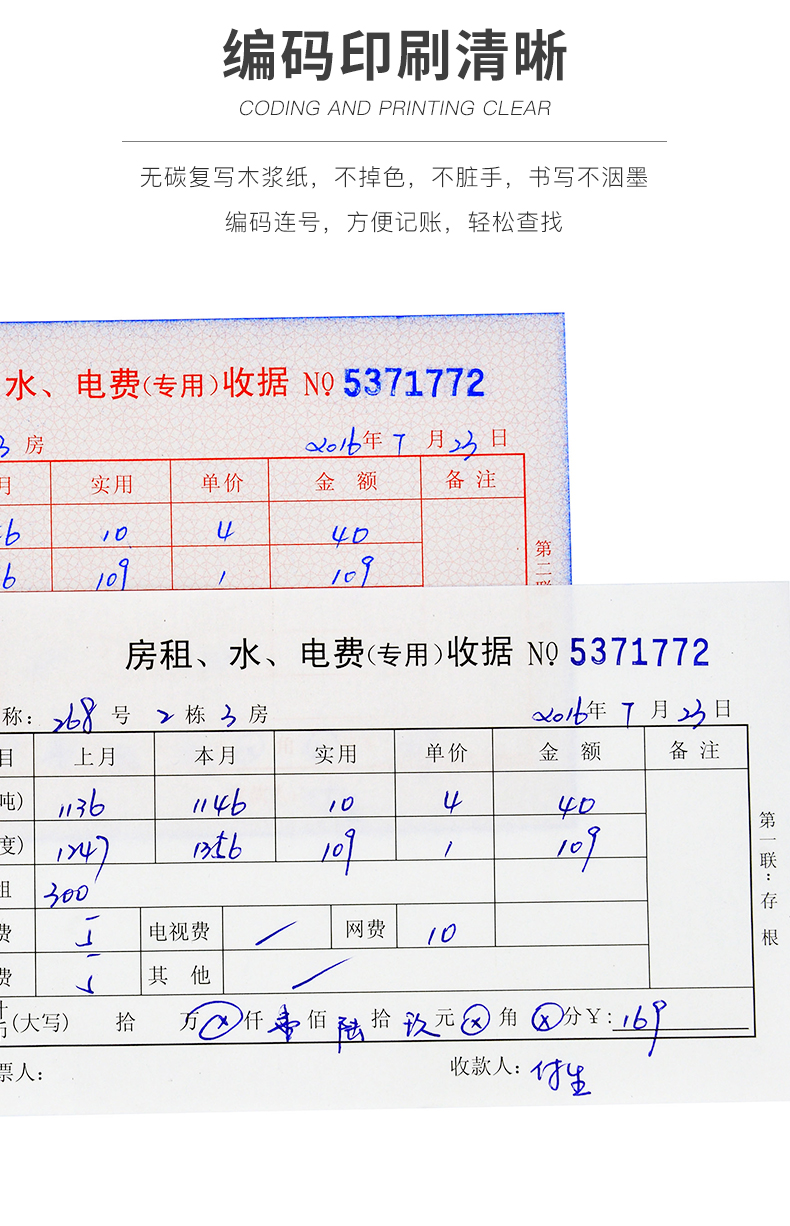 编码印刷清晰
CODING AND PRINTING CLEAR
无碳复写木浆纸，不掉色，不脏手，书写不洇墨
编码连号，方便记账，轻松查找
水、电费(专用)收据 NO. 5371772
3 房 2016年 7 月 23 日
月 实用 单价 金 额 备 注
10 4 40
6 109 1 109
第二联
房租、水、电费(专用)收据 NO. 5371772
称: 268 号 2 栋 3 房 2016年 7 月 23 日
目 上月 本月 实用 单价 金 额 备 注
吨) 1136 1146 10 4 40
度) 1247 1356 109 1 109
租 300
费 5 电视费 / 网费 10
费 5 其 他 /
(大写) 拾 万 ⓧ 仟 壹 佰 陆 拾 玖 元 ⓧ 角 ⓧ 分 ¥: 169
第一联:存根
票人: 收款人: 付生